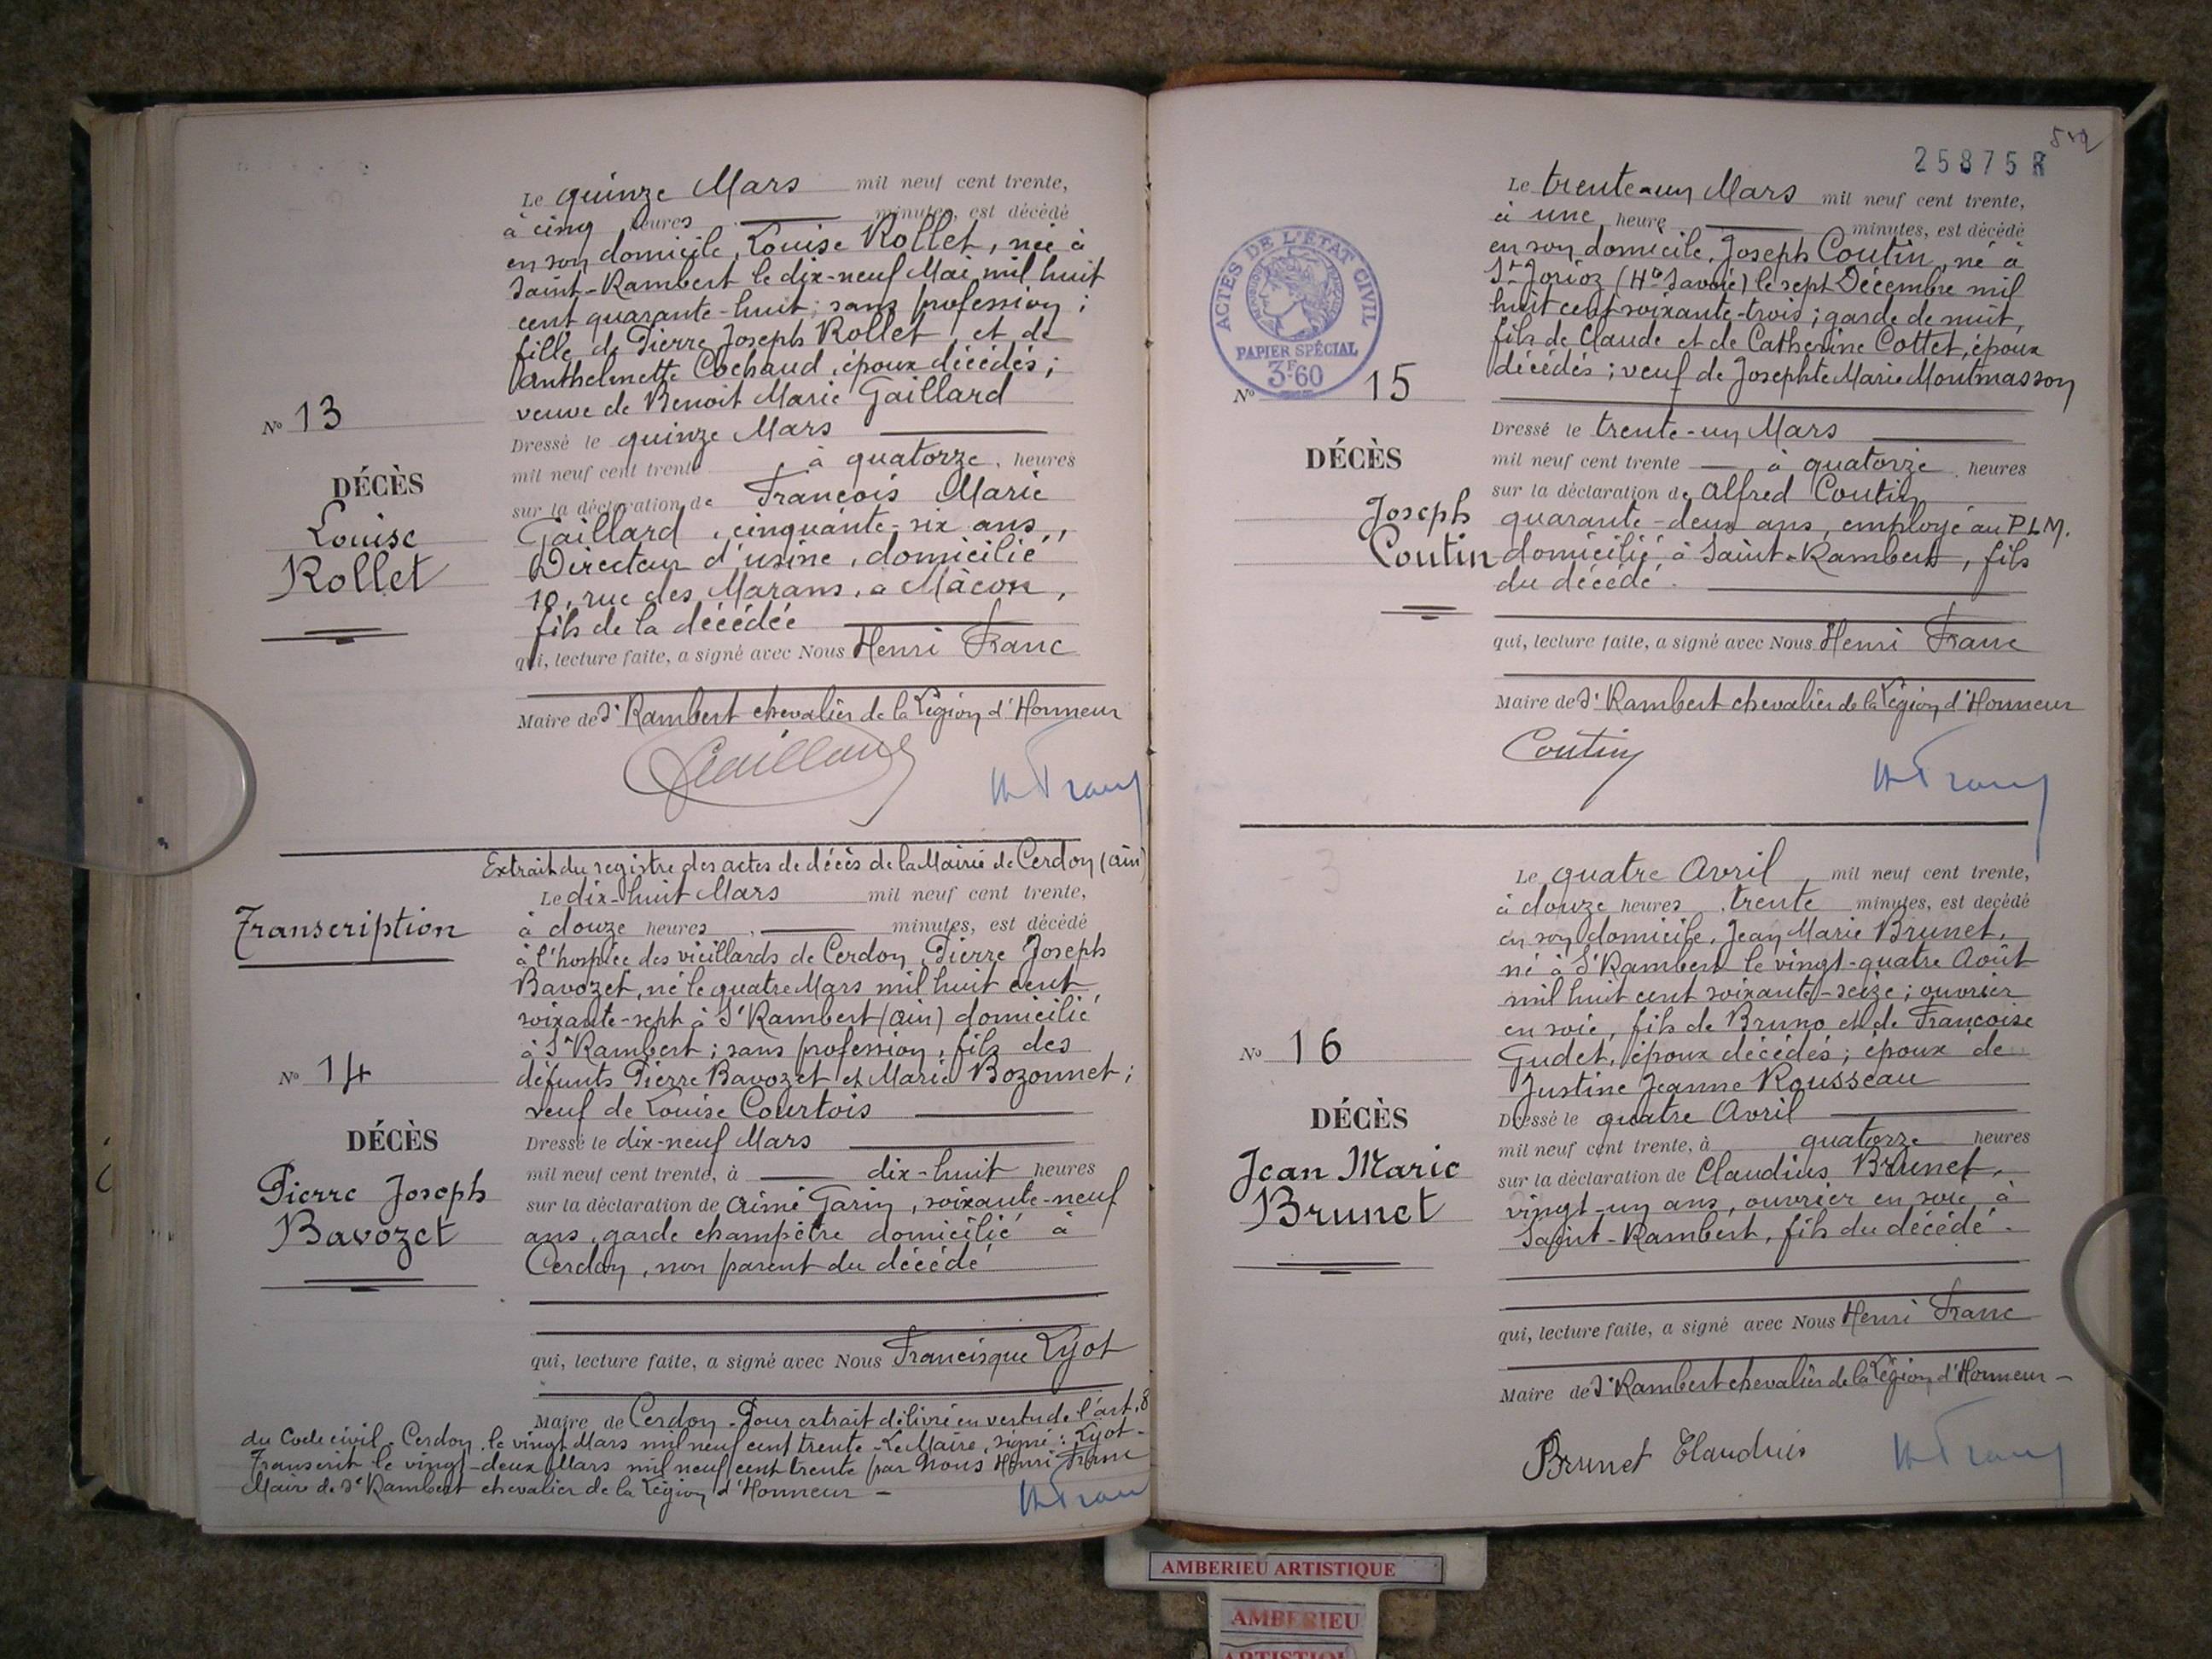 Le quinze Mars mil neuf cent trente,
à cinq heures minutes, est décédé
en son domicile, Louise Rollet, née à
Saint-Rambert le dix-neuf Mai mil huit
cent quarante-huit; sans profession;
fille de Pierre Joseph Rollet et de
Anthelmette Cochaud, époux décédés;
veuve de Benoit Marie Gaillard
Nº 13
DÉCÈS
Louise
Rollet
Dressé le quinze Mars
mil neuf cent trente, à quatorze heures
sur la déclaration de François Marie
Gaillard, cinquante-six ans,
Directeur d'usine, domicilié
10, rue des Marans, à Mâcon,
fils de la décédée
qui, lecture faite, a signé avec Nous Henri Franc
Maire de St Rambert chevalier de la Légion d'Honneur
Gaillard
H Franc
Extrait du registre des actes de décès de la Mairie de Cerdon (Ain)
Transcription
Le dix-huit Mars mil neuf cent trente,
à douze heures, minutes, est décédé
à l'hospice des vieillards de Cerdon, Pierre Joseph
Bavozet, né le quatre Mars mil huit cent
soixante-sept à St Rambert (Ain) domicilié
à St Rambert; sans profession, fils des
défunts Pierre Bavozet et Marie Bozonnet;
veuf de Louise Courtois
Nº 14
DÉCÈS
Pierre Joseph
Bavozet
Dressé le dix-neuf Mars
mil neuf cent trente, à dix-huit heures
sur la déclaration de Aimé Garin, soixante-neuf
ans, garde champêtre domicilié à
Cerdon, non parent du décédé
qui, lecture faite, a signé avec Nous Francisque Lyot
Maire de Cerdon - Pour extrait délivré en vertu de l'art. 8
du Code civil - Cerdon, le vingt Mars mil neuf cent trente - Le Maire, signé: Lyot -
Transcrit le vingt-deux Mars mil neuf cent trente par Nous Henri Franc
Maire de St Rambert chevalier de la Légion d'Honneur -
H Franc
25875 R
ACTES DE L'ÉTAT CIVIL
PAPIER SPÉCIAL
3F60
Le trente-un Mars mil neuf cent trente,
à une heure minutes, est décédé
en son domicile, Joseph Coutin, né à
St-Jorioz (Hte Savoie) le sept Décembre mil
huit cent soixante-trois; garde de nuit,
fils de Claude et de Catherine Cottet, époux
décédés; veuf de Josephte Marie Montmasson
Nº 15
DÉCÈS
Joseph
Coutin
Dressé le trente-un Mars
mil neuf cent trente à quatorze heures
sur la déclaration de Alfred Coutin
quarante-deux ans, employé au P.L.M.
domicilié à Saint-Rambert, fils
du décédé.
qui, lecture faite, a signé avec Nous Henri Franc
Maire de St Rambert chevalier de la Légion d'Honneur
Coutin
H Franc
Le quatre Avril, mil neuf cent trente,
à douze heures, trente minutes, est décédé
en son domicile, Jean Marie Brunet,
né à St Rambert le vingt-quatre Août
mil huit cent soixante-seize; ouvrier
en soie, fils de Bruno et de Françoise
Gudet, époux décédés; époux de
Justine Jeanne Rousseau
Nº 16
DÉCÈS
Jean Marie
Brunet
Dressé le quatre Avril
mil neuf cent trente, à quatorze heures
sur la déclaration de Claudius Brunet,
vingt-un ans, ouvrier en soie, à
Saint-Rambert, fils du décédé.
qui, lecture faite, a signé avec Nous Henri Franc
Maire de St Rambert chevalier de la Légion d'Honneur -
Brunet Claudius
H Franc
AMBERIEU ARTISTIQUE
AMBERIEU
ARTISTIQU